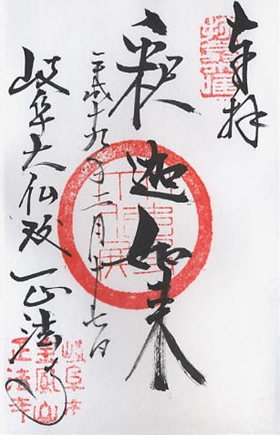 奉拝
釈迦如来
平成十九年二月十七日
岐阜大仏殿 正法寺
岐阜市
金鳳山
正法寺